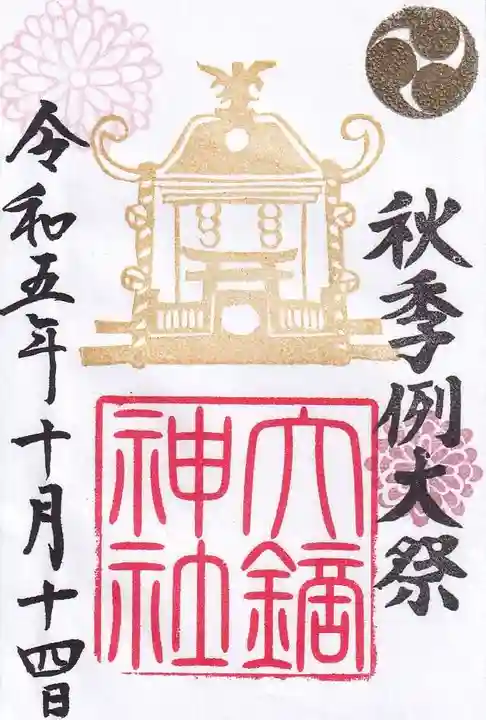 秋季例大祭
六鏑神社
令和五年十月十四日